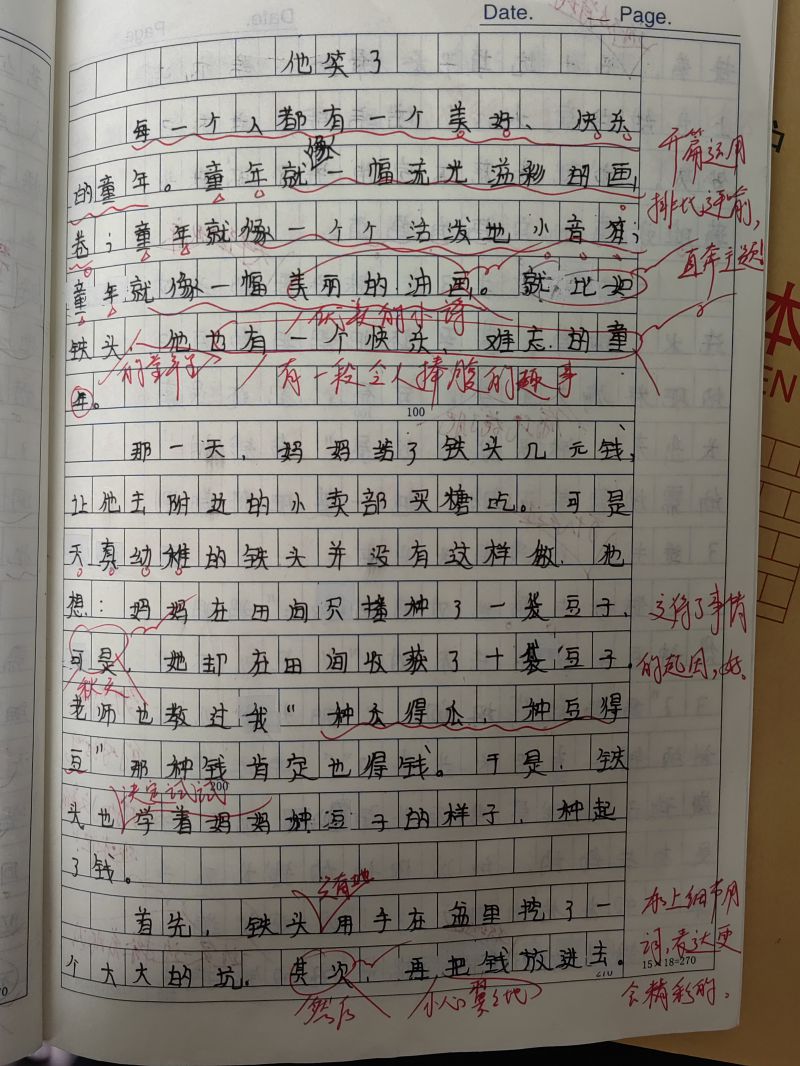 Date. Page.
他笑了
每一个人都有一个美好、快乐
的童年。童年就像一幅流光溢彩的画
卷；童年就像一个个活泼地小音符；
童年就像一幅美丽的油画。就比如
铁头，他也有一个快乐、难忘的童
年。
100
那一天，妈妈给了铁头几元钱，
让他去附边的小卖部买糖吃。可是
天真幼稚的铁头并没有这样做，他
想：妈妈在田间只播种了一袋豆子，
可是，她却在田间收获了十袋豆子。
老师也教过我"种瓜得瓜，种豆得
豆"那种钱肯定也得钱。于是，铁
200
头也学着妈妈种豆子的样子，种起
了钱。
首先，铁头用手在盆里挖了一
个大大的坑。其次，再把钱放进去。
15×18=270
开篇运用
排比
直奔主题！
有一段令人捧腹的趣事
交待了事情
的起因，好。
秋天
决定试试
加上细节用
词，表达更
会精彩的。
然后
小心翼翼地
本
EN